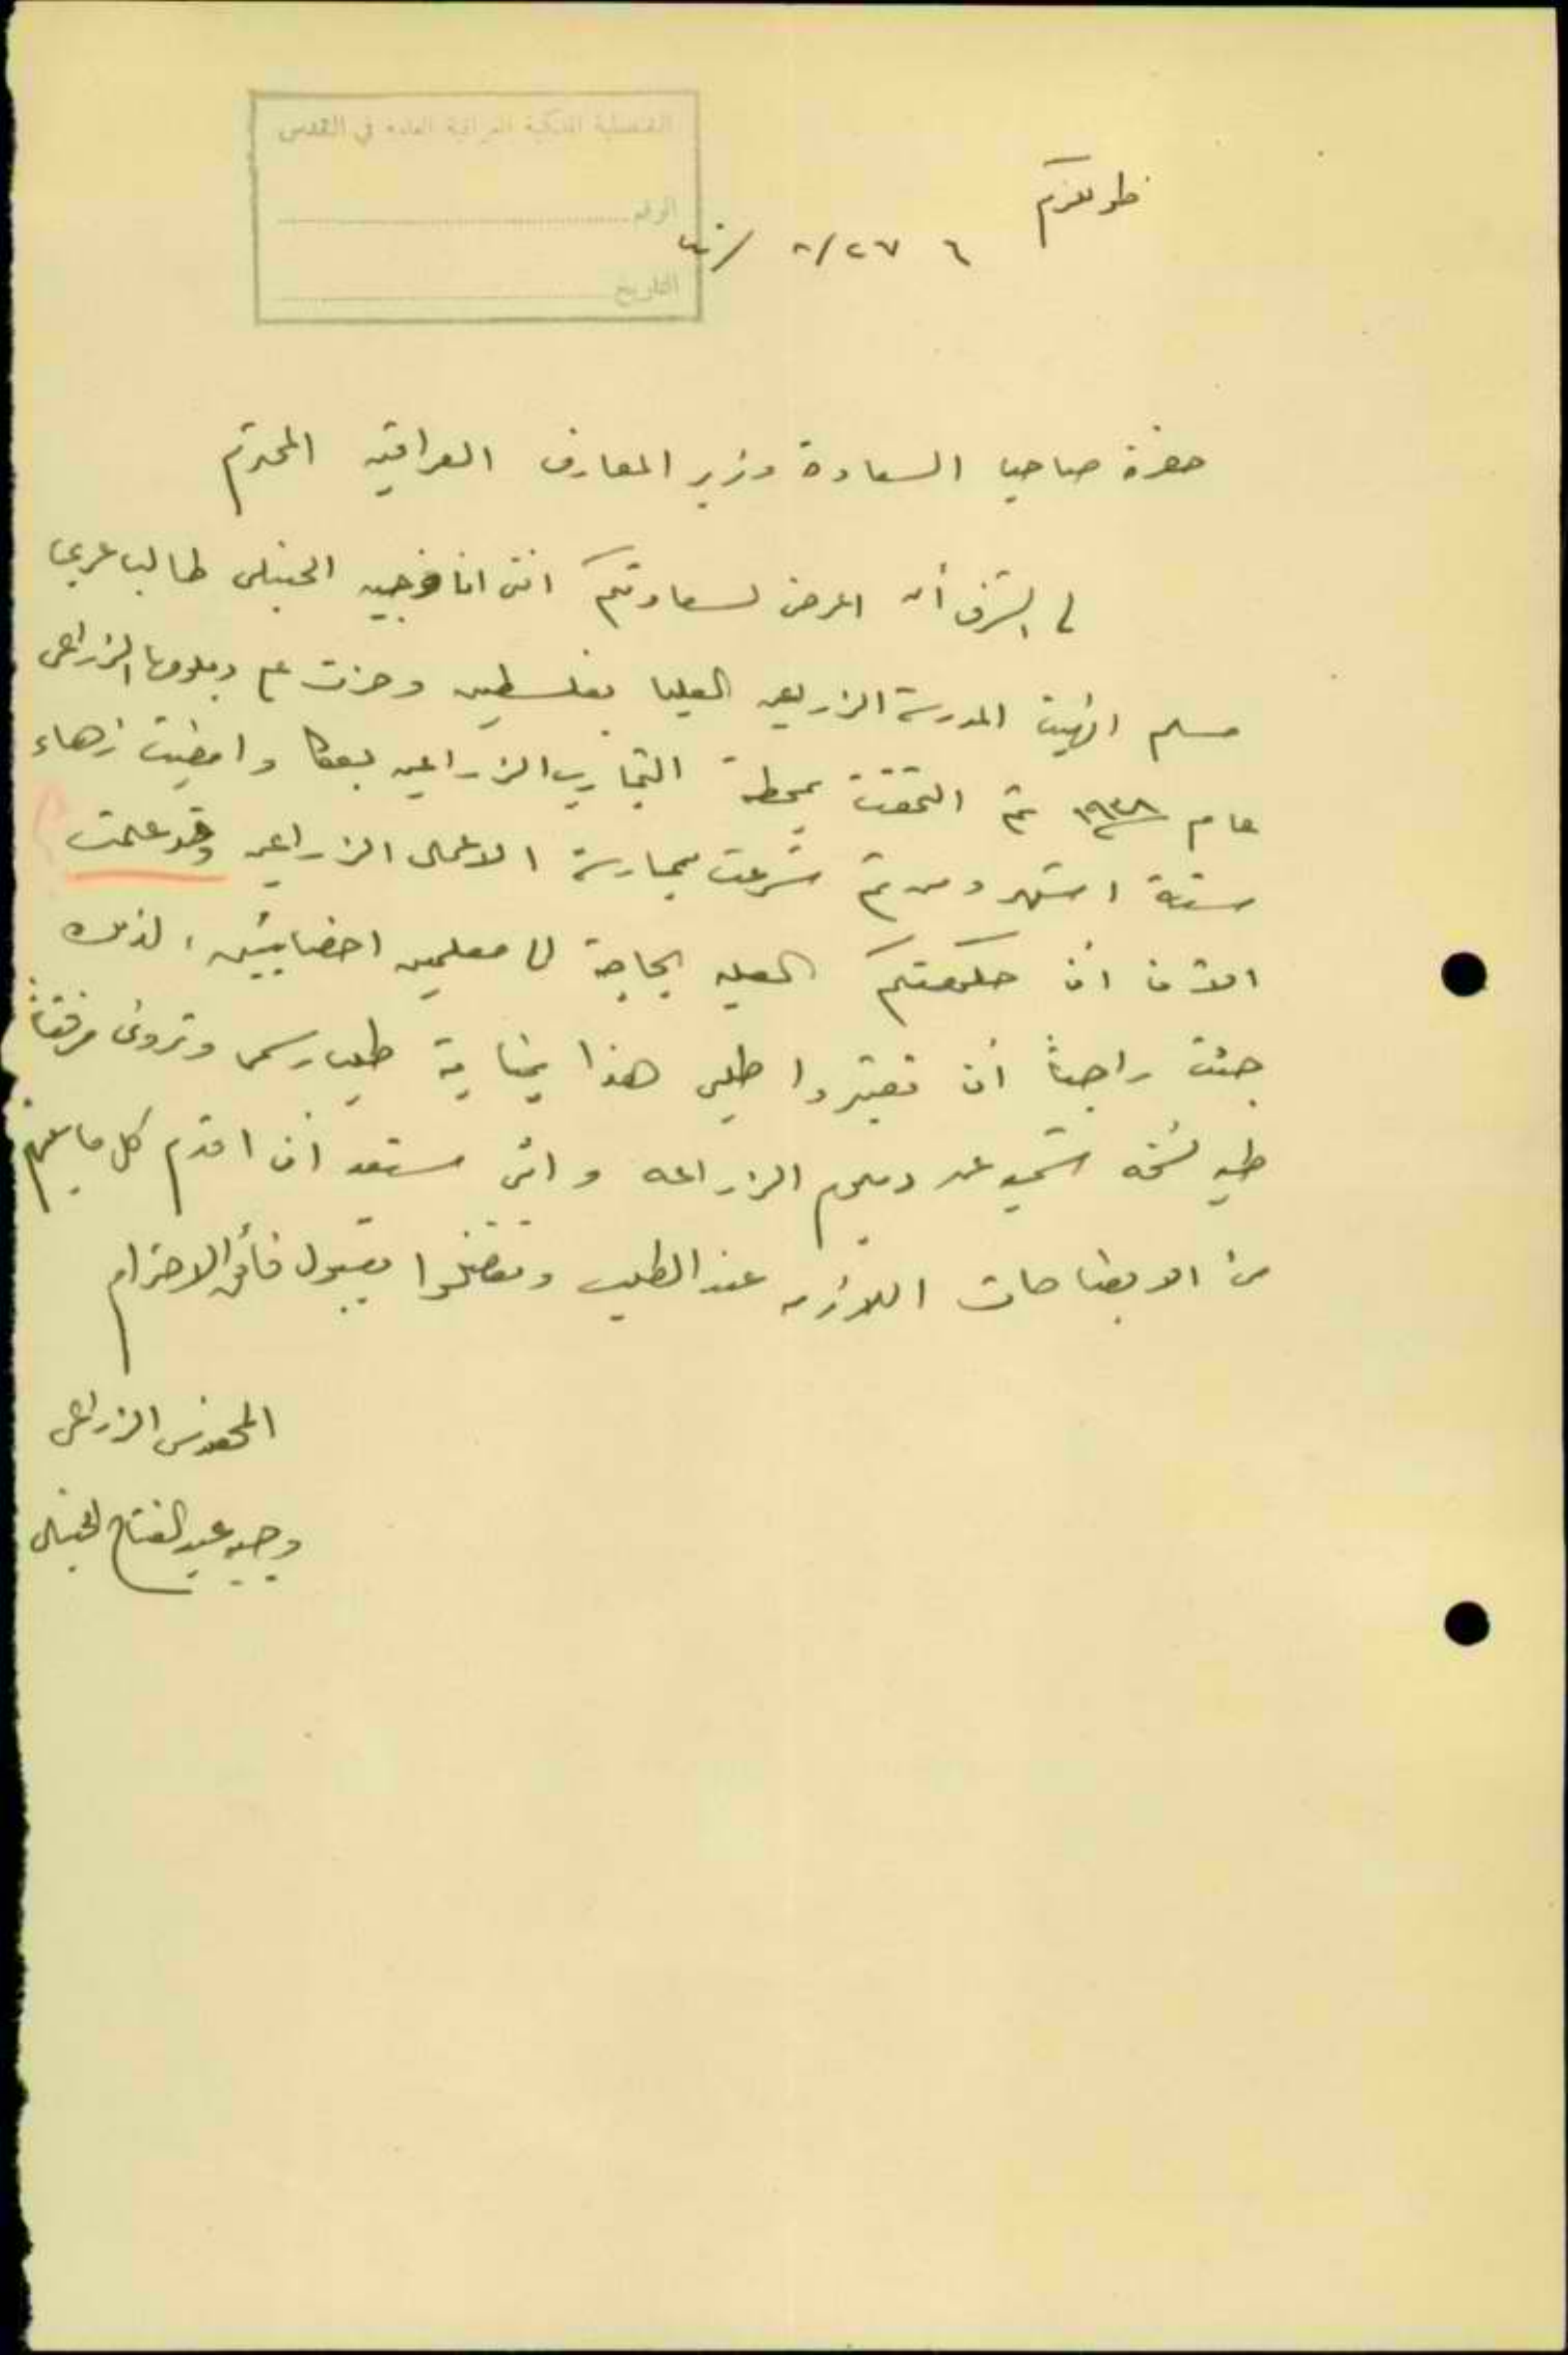 القنصلية الملكية العراقية العامة في القدس
الرقم
التاريخ
طولكرم
٢٧/٨/
حضرة صاحب السعادة وزير المعارف العراقيه المحترم
لي الشرف أن اعرض لسعادتكم انني انا وجيه الحنبلي طالب عربي
مسلم انهيت المدرسة الزراعيه العليا بفلسطين وحزت على دبلومها الزراعي
عام ١٩٣٨ ثم التحقت بمحطة التجارب الزراعيه بعكا وامضيت زهاء
ستة اشهر ومن ثم شرعت بممارسة الاعمال الزراعيه وقد علمت
الآن ان حكومتكم العليه بحاجة الى معلمين اخصائيين، لذلك
جئت راجياً أن تعتبروا طلبي هذا بمثابة طلب رسمي وترون مرفقاً
طيه نسخه شمسيه عن دبلوم الزراعه وانني مستعد أن اقدم كل ما يلزم
من الايضاحات اللازمه عند الطلب وتفضلوا بقبول فائق الاحترام
المهندس الزراعي
وجيه عبد الفتاح الحنبلي